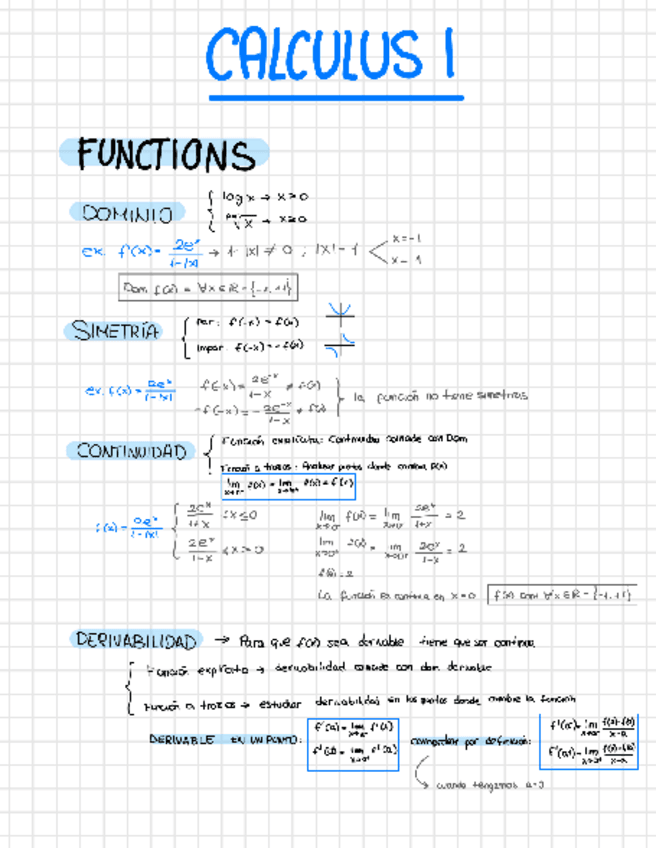 CALCULUS 1
FUNCTIONS
DOMINIO { log x → x>0
√x → x≥0
ex. f(x) = 2eˣ/(1-|x|) → 1-|x| ≠ 0 ; |x| = 1 < x=-1
x=1
Dom f(x) = ∀x∈ℝ-{-1,+1}
SIMETRÍA { Par: f(-x) = f(x)
Impar: f(-x) = -f(x)
ex. f(x) = 2eˣ/(1-|x|) f(-x) = 2e⁻ˣ/(1-x) ≠ f(x)
-f(-x) = -2e⁻ˣ/(1-x) ≠ f(x) } la función no tiene simetrías
CONTINUIDAD { Función explícita: Continuidad coincide con Dom
Función a trozos: Analizar puntos donde cambia f(x)
f(x) = 2eˣ/(1-|x|) { 2eˣ/(1+x) si x≤0
2eˣ/(1-x) si x>0
lim f(x) = lim 2eˣ/(1+x) = 2
lim f(x) = lim 2eˣ/(1-x) = 2
f(0) = 2
La función es continua en x=0 f(x) cont ∀x∈ℝ-{-1,+1}
DERIVABILIDAD → Para que f(x) sea derivable tiene que ser continua.
Función explícita → derivabilidad coincide con dom. derivable
Función a trozos → estudiar derivabilidad en los puntos donde cambie la función
DERIVABLE EN UN PUNTO: comprobar por definición:
cuando tengamos a=0